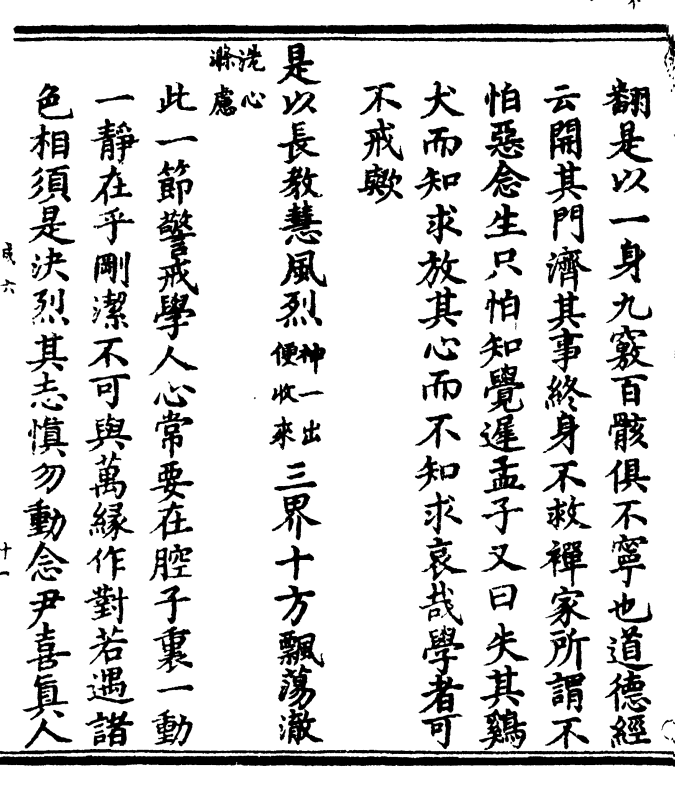 翻是以一身九竅百骸俱不寧也道德經
云開其門濟其事終身不救禪家所謂不
怕惡念生只怕知覺遲孟子又曰失其鷄
犬而知求放其心而不知求哀哉學者可
不戒歟
是以長教慧風烈神一出便收來三界十方飄蕩澈
洗心滌慮
此一節警戒學人心常要在腔子裏一動
一靜在乎剛潔不可與萬緣作對若遇諸
色相須是決烈其志慎勿動念尹喜眞人
成六
十一